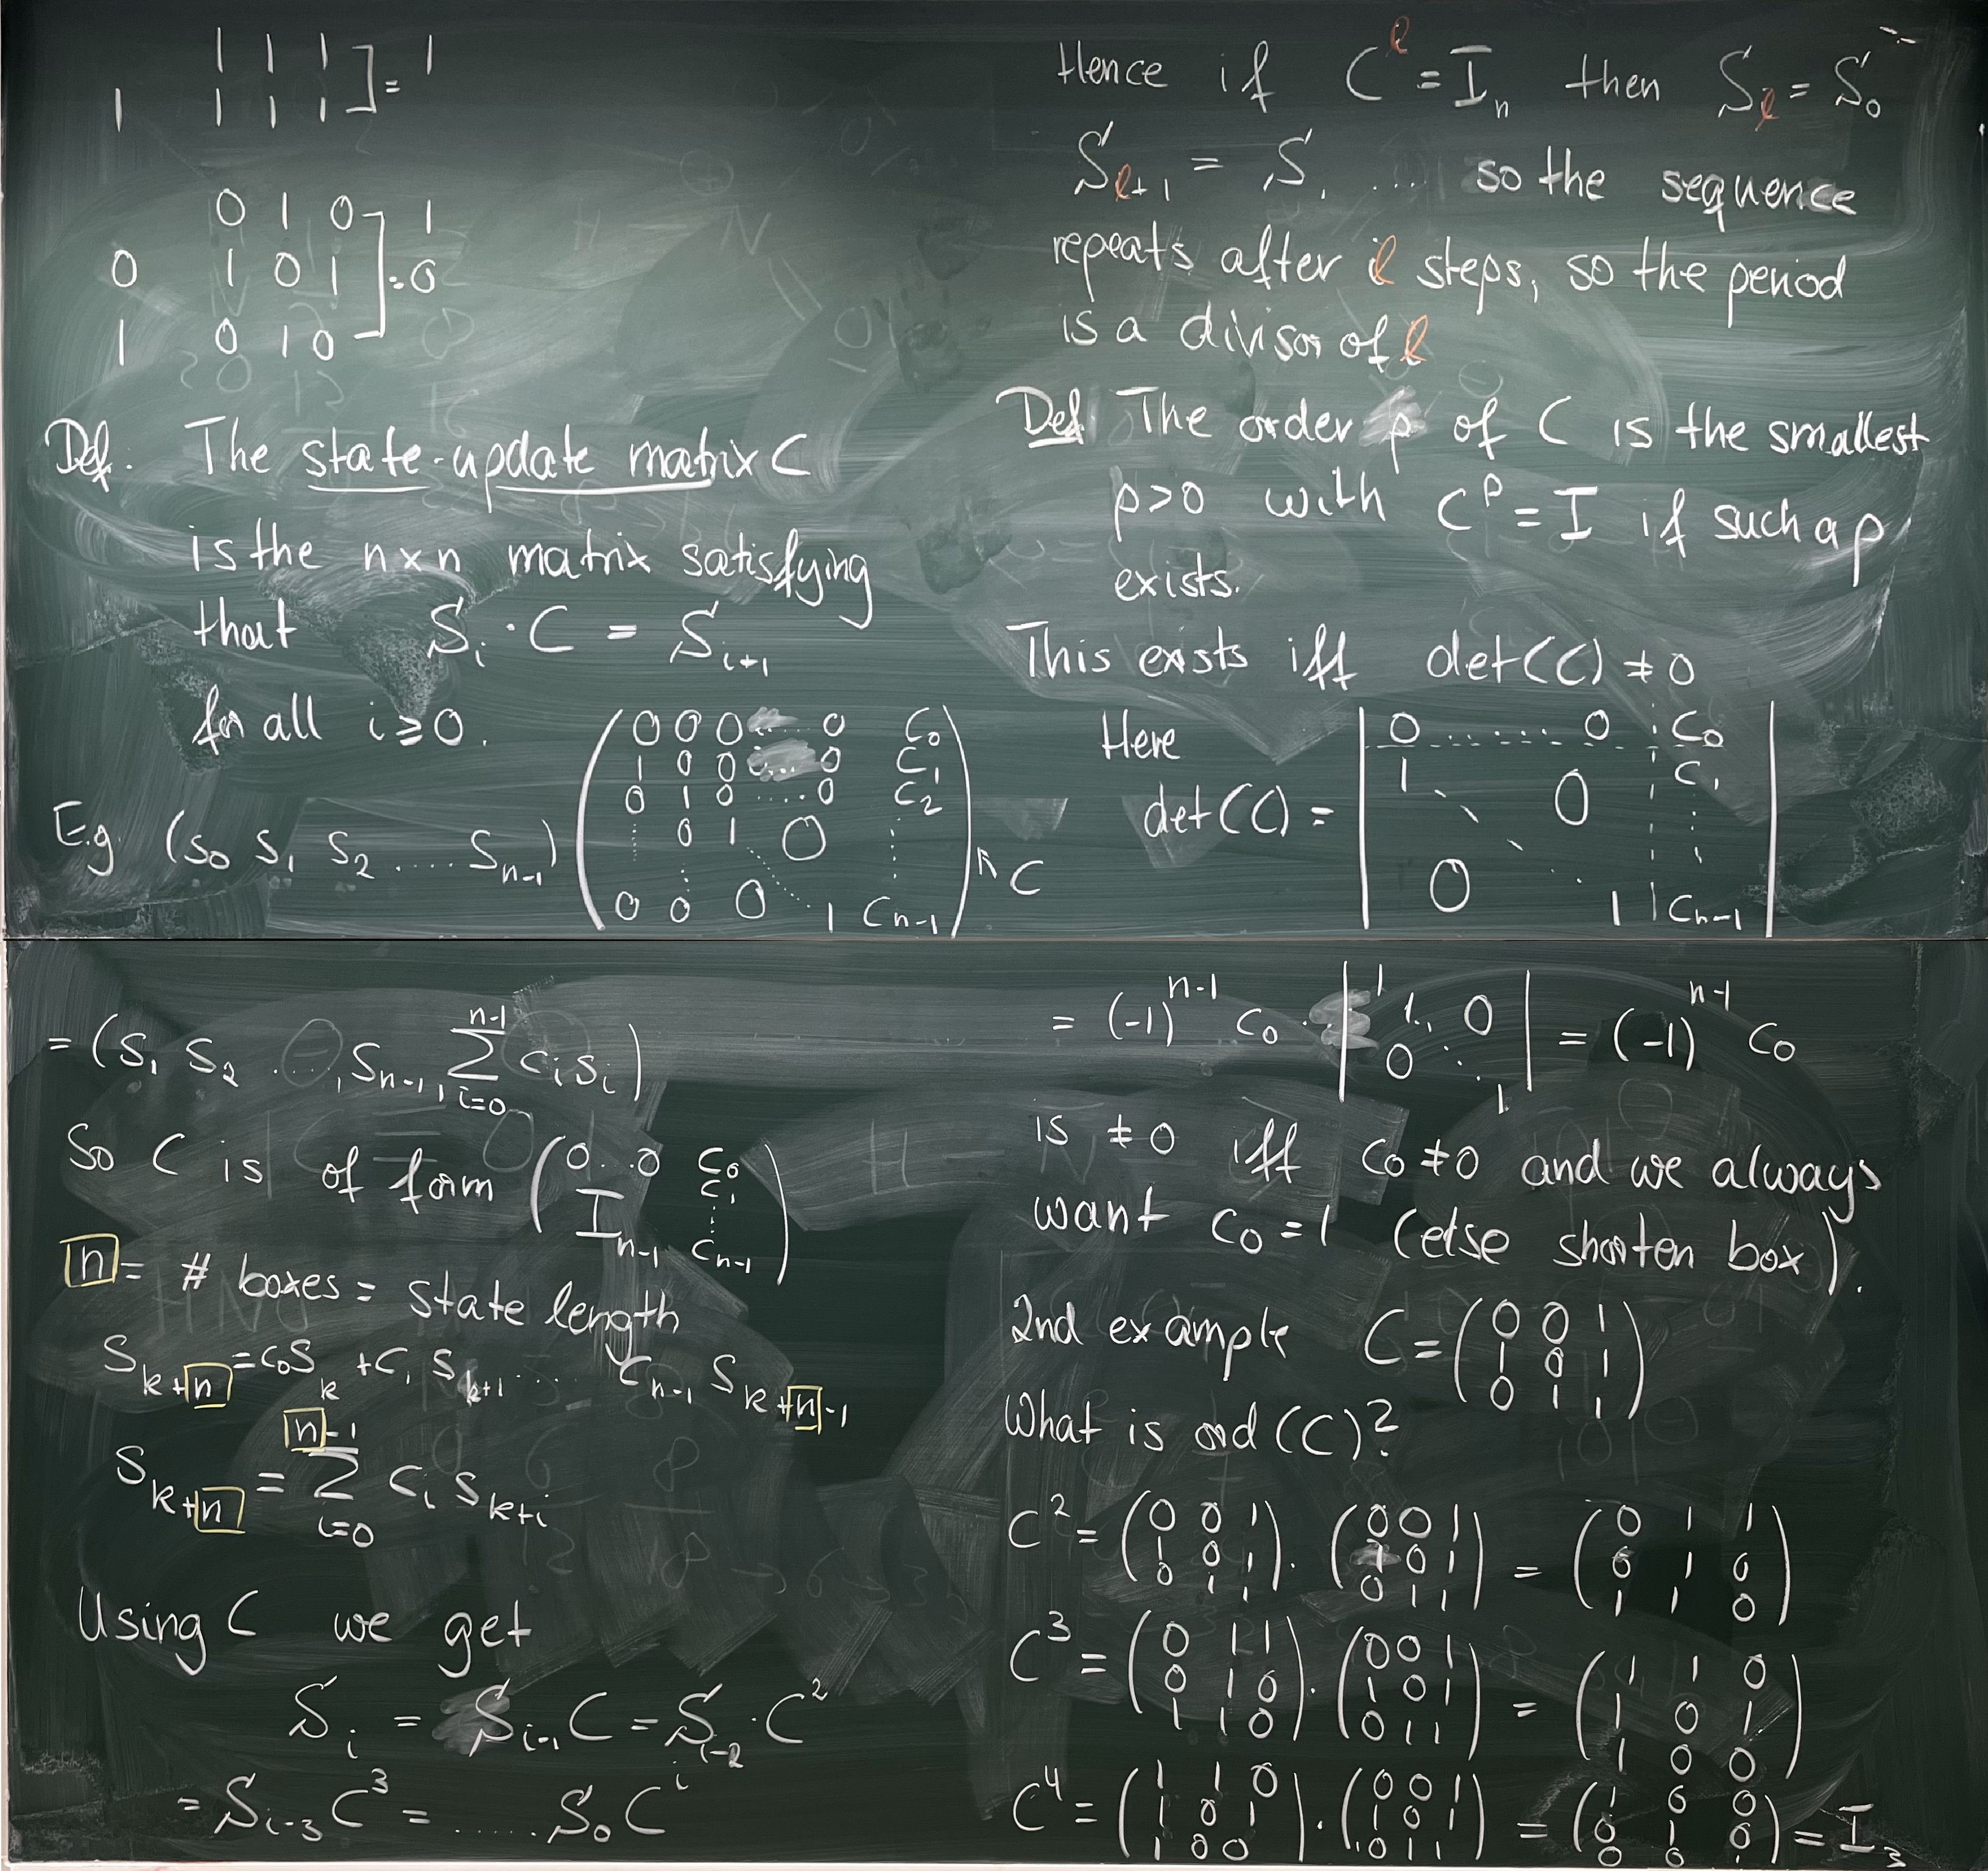 1 1 1 ] = 1
1 1 1 1
0 1 0 ] 1
0 1 0 1 ] . 0
1 0 1 0 ]
Def. The state-update matrix C
is the n×n matrix satisfying
that S_i · C = S_{i+1}
for all i ≥ 0.
E.g. (s_0 s_1 s_2 .... s_{n-1})
0 0 0 ... 0 c_0
1 0 0 ... 0 c_1
0 1 0 .... 0 c_2
0 1 0
0 0 0 1 c_{n-1}
↖ C
= (s_1 s_2 ..., s_{n-1}, ∑_{i=0}^{n-1} c_i s_i)
So C is of form
( 0..0 c_0
c_1
I_{n-1} c_{n-1} )
n = # boxes = state length
s_{k+n} = c_0 s_k + c_1 s_{k+1} ..... c_{n-1} s_{k+n-1}
s_{k+n} = ∑_{i=0}^{n-1} c_i s_{k+i}
Using C we get
S_i = S_{i-1} C = S_{i-2} · C^2
= S_{i-3} C^3 = ...... S_0 C^i
Hence if C^ℓ = I_n then S_ℓ = S_0
S_{ℓ+1} = S_1 .... so the sequence
repeats after ℓ steps, so the period
is a divisor of ℓ
Def. The order p of C is the smallest
p>0 with C^p = I if such a p
exists.
This exists iff det(C) ≠ 0
Here
det(C) =
0 ....... 0 c_0
1 0 c_1
0 1 c_{n-1}
= (-1)^{n-1} c_0 · | 1 1 0 0 1 | = (-1)^{n-1} c_0
is ≠ 0 iff c_0 ≠ 0 and we always
want c_0 = 1 (else shorten box).
2nd example C =
( 0 0 1
1 0 1
0 1 1 )
What is ord(C)?
C^2 =
( 0 0 1 ) ( 0 0 1 ) ( 0 1 1 )
( 1 0 1 ) · ( 1 0 1 ) = ( 0 1 0 )
( 0 1 1 ) ( 0 1 1 ) ( 1 1 0 )
C^3 =
( 0 1 1 ) ( 0 0 1 ) ( 1 1 0 )
( 0 1 0 ) · ( 1 0 1 ) = ( 1 0 1 )
( 1 1 0 ) ( 0 1 1 ) ( 1 0 0 )
C^4 =
( 1 1 0 ) ( 0 0 1 ) ( 1 0 0 )
( 1 0 1 ) · ( 1 0 1 ) = ( 0 1 0 ) = I_3
( 1 0 0 ) ( 0 1 1 ) ( 0 0 1 )